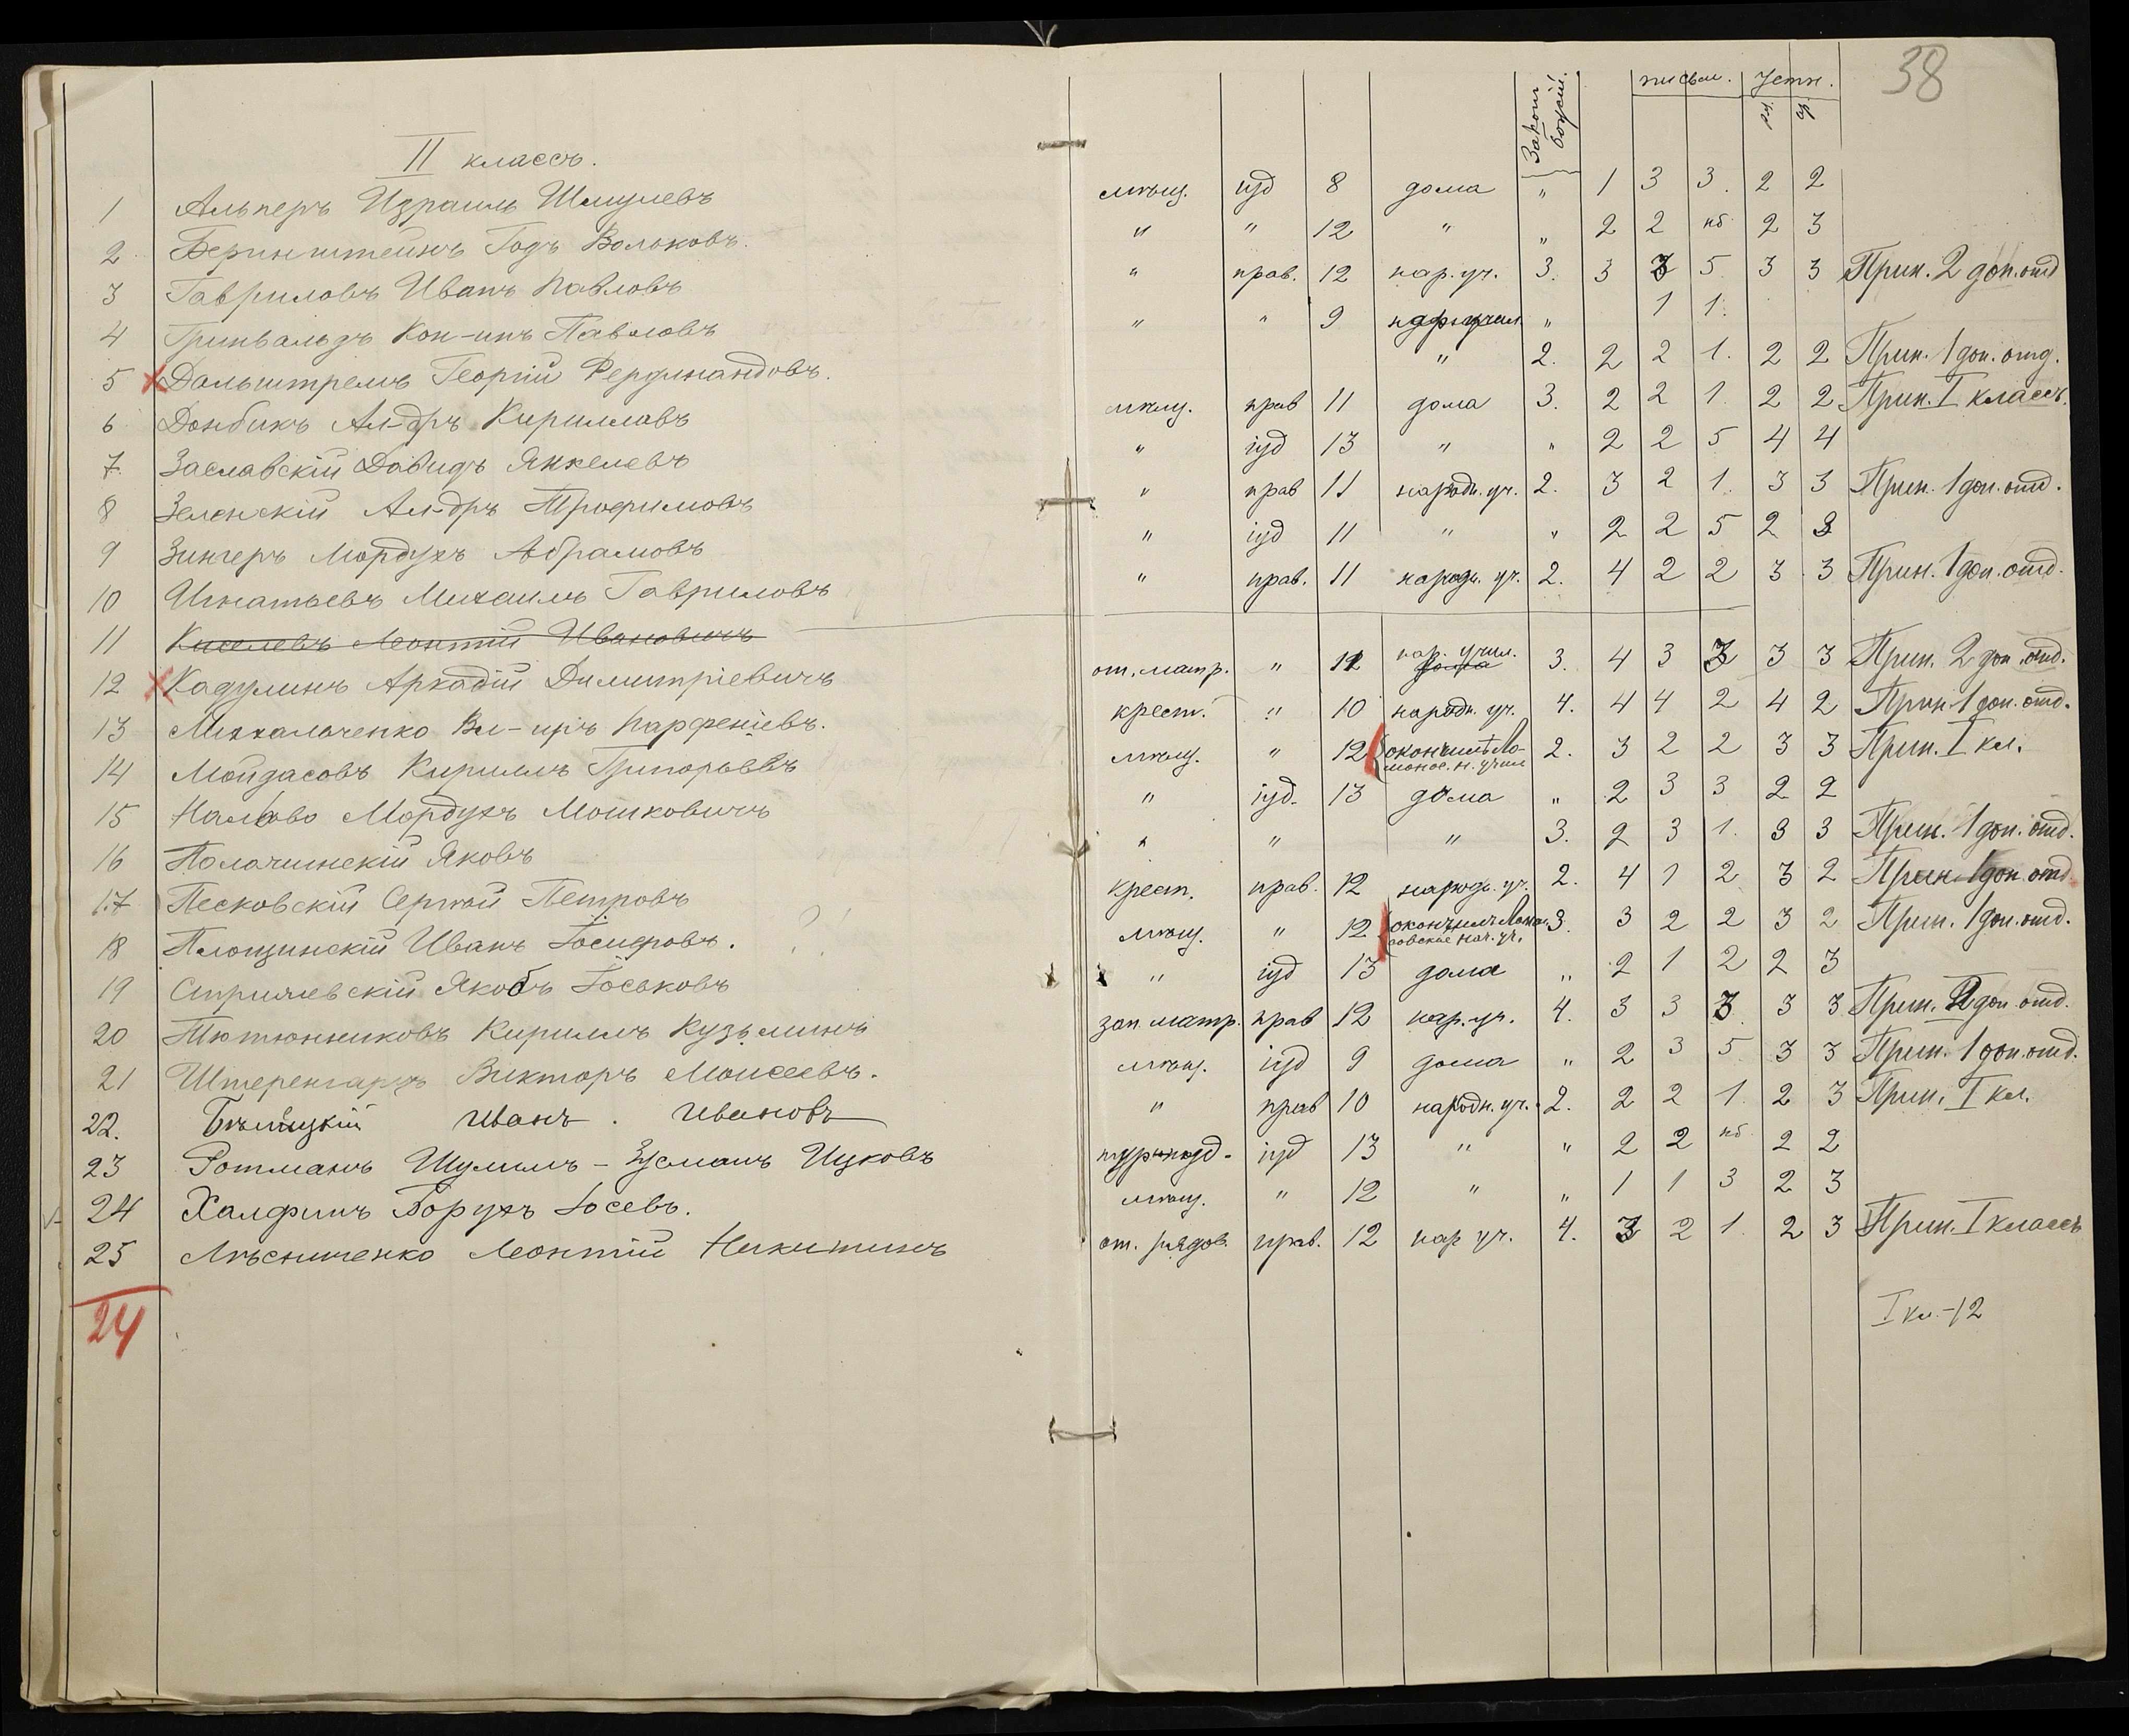 38
Законъ Божій. письм. Устн.
р. ар.
II классъ.
1 Альперъ Израиль Шмулевъ мѣщ. іуд 8 дома " 1 3 3. 2 2
2 Беринштейнъ Годъ Вольковъ. " " 12 " " 2 2 нб 2 3
3 Гавриловъ Иванъ Павловъ " прав. 12 нар. уч. 3. 3 3 5 3 3 Прин. 2 доп. отд
4 Гринвальдъ Кон-инъ Павловъ " " 9 " 1 1.
5 Дальштремъ Георгій Фердинандовъ. " 2. 2 2 1. 2 2 Прин. 1 доп. отд.
6 Донбикъ Ал-дръ Кирилловъ мѣщ. прав 11 дома 3. 2 2 1. 2 2 Прин. I классъ.
7. Заславскій Давидъ Янкелевъ " іуд 13 " " 2 2 5 4 4
8 Зеленскій Ал-дръ Трофимовъ " прав 11 народн. уч. 2. 3 2 1. 3 3 Прин. 1 доп. отд.
9 Зингеръ Мордухъ Абрамовъ " іуд 11 " " 2 2 5 2 3
10 Игнатьевъ Михаилъ Гавриловъ " прав. 11 народн. уч. 2. 4 2 2 3 3 Прин. 1 доп. отд.
11 Киселевъ Леонтій Ивановичъ
12 Кадулинъ Аркадій Димитріевичъ от. матр. " 12 нар. учил. дома 3. 4 3 3 3 3 Прин. 2 доп. отд.
13 Михальченко Вл-иръ Парфеніевъ. крест. " 10 народн. уч. 4. 4 4 2 4 2 Прин 1 доп. отд.
14 Мойдасовъ Кириллъ Григорьевъ мѣщ. " 12 окончилъ Ло-монос. н. учил 2. 3 2 2 3 3 Прин. I кл.
15 Мордухъ Мошковичъ " іуд. 13 дома " 2 3 3 2 2
16 Полачинскій Яковъ " " " 3. 2 3 1. 3 3 Прин. 1 доп. отд.
17 Песковскій Сергѣй Петровъ крест. прав. 12 народн. уч. 2. 4 1 2 3 2 Прин 1 доп. отд
18 Площинскій Иванъ Іосифовъ. мѣщ. " 12 окончилъ Ломо-совское нач. уч. 3. 3 2 2 3 2 Прин. 1 доп. отд.
19 Якобъ Іоськовъ " іуд 13 дома " 2 1 2 2 3
20 Тютюнниковъ Кириллъ Кузьминъ зап. матр. прав 12 нар. уч. 4. 3 3 3. 3 3 Прин. 2 доп. отд.
21 Штеренгарцъ Викторъ Моисеевъ. мѣщ. іуд 9 дома " 2 3 5 3 3 Прин. 1 доп. отд.
22. Бѣлицкій Иванъ. Ивановъ " прав 10 народн. уч. 2. 2 2 1. 2 3 Прин. I кл.
23 Ротманъ Шулимъ-Зусманъ Ицковъ іуд 13 " " 2 2 нб 2 2
24 Халфинъ Борухъ Іосевъ. мѣщ. " 12 " " 1 1 3 2 3
25 Лѣсниченко Леонтій Никитинъ от. рядов. прав. 12 нар уч. 4. 3 2 1. 2 3 Прин. I классъ
24
I кл.-12